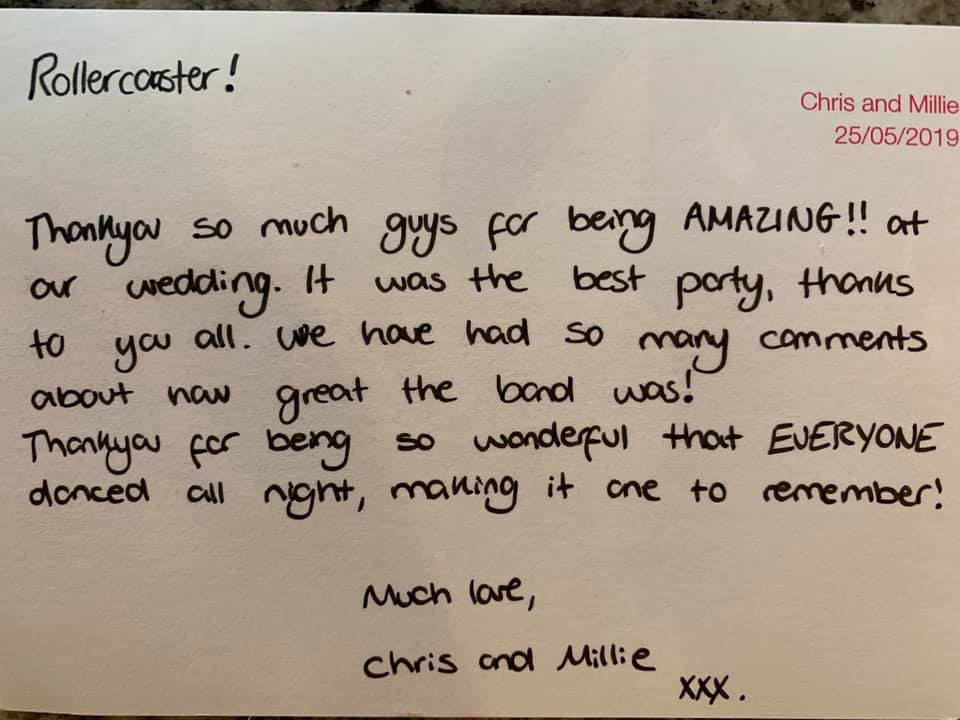 Rollercoaster!
Chris and Millie
25/05/2019
Thankyou so much guys for being AMAZING!! at
our wedding. It was the best party, thanks
to you all. We have had so many comments
about how great the band was!
Thankyou for being so wonderful that EVERYONE
danced all night, making it one to remember!
Much love,
Chris and Millie
xxx.